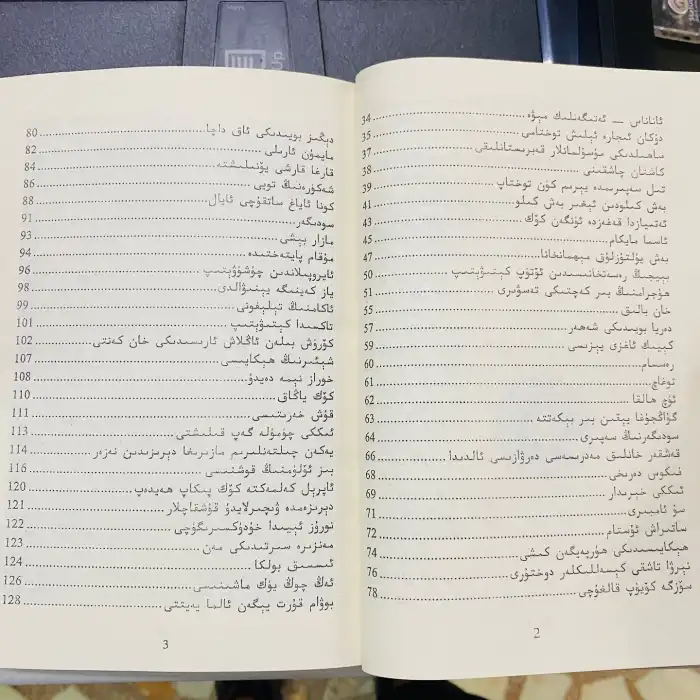 ئاناناس — ئەتىگەنلىك مېۋە 34
دۇكان ئىجارە ئېلىش توختامى 35
ساھىلدىكى مۇسۇلمانلار قەبرىستانلىقى 37
كاشتان چاشقىنى 38
تىل سەپىرىمدە يېرىم كۈن توختاپ 39
بەش كىلودىن ئېغىر بەش كىلو 41
ئەتىيازدا قەفەزدە ئۈنگەن كۆك 43
ئاسما مايكام 45
بەش يۇلتۇزلۇق مېھمانخانا 47
بېيجىڭ رەسەتخانىسىدىن ئۆتۈپ كېتىۋېتىپ 50
ھۇجرامنىڭ بىر كەچتىكى تەسۋىرى 51
خان بالىق 55
دەريا بويىدىكى شەھەر 57
كېيىك ئاغزى يېزىسى 59
رەسسام 60
توغاچ 61
ئۈچ ھالقا 62
گۇاڭجۇغا يېقىن بىر بېكەتتە 63
سودىگەرنىڭ سەپىرى 64
قەشقەر خانلىق مەدرىسەسى دەرۋازىسى ئالدىدا 66
فىكوس دەرىخى 68
ئىككى خېرىدار 69
سۇ ئامبىرى 71
ساتىراش ئۇستام 72
ھېكايىسىدىكى ھۈرپەيگەن كىشى 74
نېرۋا تاشقى كېسەللىكلەر دوختۇرى 76
سۆزگە كۆيۈپ قالغۇچى 78
2
دېڭىز بويىدىكى ئاق داچا 80
مايمۇن ئارىلى 82
قارغا قارشى يۆنىلىشتە 84
شەكۈرەنىڭ تويى 86
كونا ئاياغ ساتقۇچى ئايال 88
سودىگەر 91
مازار بېشى 93
مۇقام پايتەختىدە 94
ئايروپىلاندىن چۈشۈۋېتىپ 96
ياز كەينىگە يېنىۋالدى 98
ئاكامنىڭ تېلېفونى 99
تاكسىدا كېتىۋېتىپ 101
كۆرۈش بىلەن ئاڭلاش ئارىسىدىكى خان كەنتى 102
شېئىرنىڭ ھېكايىسى 107
خوراز نېمە دەيدۇ 108
كۆك ياڭاق 110
قۇش خەرىتىسى 111
ئىككى چۈمۈلە گەپ قىلىشتى 113
يەكەن چىلتەنلىرىم مازىرىغا دېرىزىدىن نەزەر 114
بىز ئۆلۈمنىڭ قوشنىسى 116
ئاپرېل كەلمەكتە كۆك پىكاپ ھەيدەپ 120
دېرىزەمدە ۋىچىرلايدۇ قۇشقاچلار 121
نورۇز ئېيىدا خۇدۈكسىرىگۈچى 122
مەنزىرە سىرتىدىكى مەن 123
ئىسسىق بولكا 124
ئەڭ چوڭ يۈك ماشىنىسى 126
بوۋام قۇرت يېگەن ئالما يەيتتى 128
3